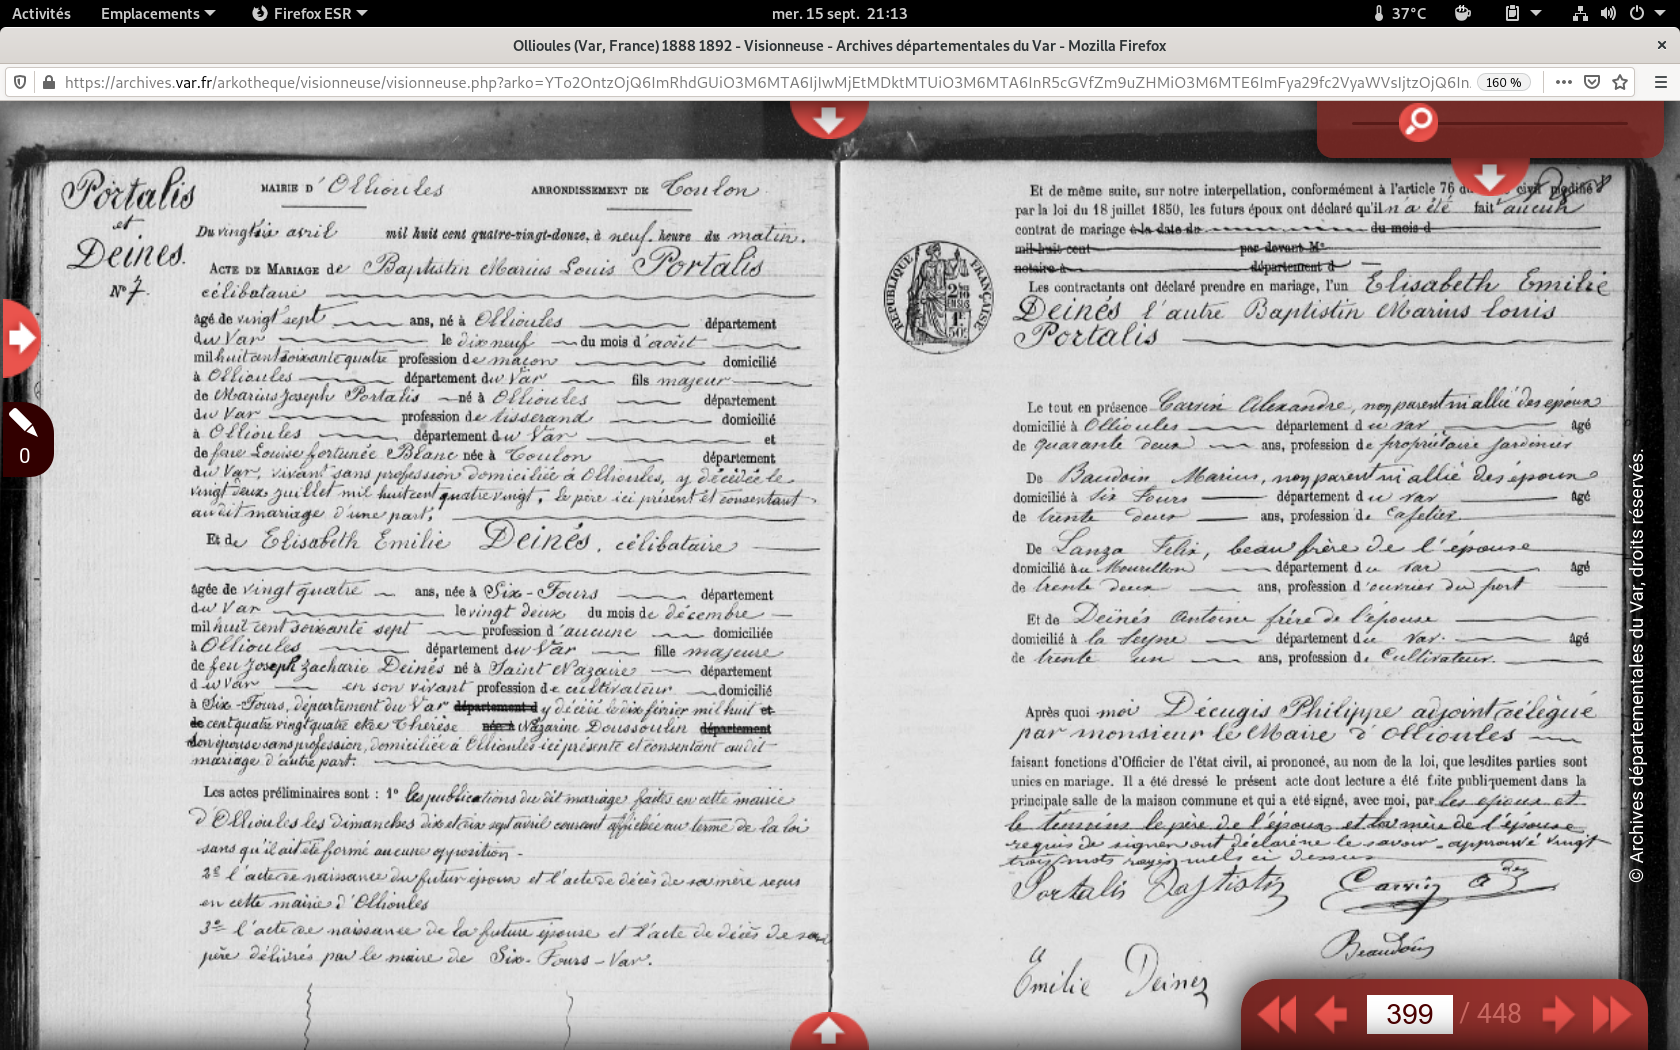 Activités Emplacements Firefox ESR mer. 15 sept. 21:13 37°C
Ollioules (Var, France) 1888 1892 - Visionneuse - Archives départementales du Var - Mozilla Firefox
https://archives.var.fr/arkotheque/visionneuse/visionneuse.php?arko=YTo2OntzOjQ6ImRhdGUiO3M6MTA6IjIwMjEtMDktMTUiO3M6MTA6InR5cGVfZm9uZHMiO3M6MTE6ImFya29fc2VyaWVsIjtzOjQ6In 160 %
Portalis
et
Deines.
N° 7.
MAIRIE D'Ollioules ARRONDISSEMENT DE Toulon
Du vingt six avril mil huit cent quatre-vingt-douze, à neuf heure du matin.
ACTE DE MARIAGE de Baptistin Marius Louis Portalis
célibataire
âgé de vingt sept ans, né à Ollioules département
du Var le dix neuf du mois d'août
mil huit cent soixante quatre profession de maçon domicilié
à Ollioules département du Var fils majeur
de Marius Joseph Portalis né à Ollioules département
du Var profession de tisserand domicilié
à Ollioules département du Var et
de feue Louise fortunée Blanc née à Toulon département
du Var, vivant sans profession domiciliée à Ollioules, y décédée le
vingt deux juillet mil huit cent quatre vingt, le père ici présent et consentant
au dit mariage d'une part;
Et de Elisabeth Emilie Deinés, célibataire
âgée de vingt quatre ans, née à Six-Fours département
du Var le vingt deux du mois de décembre
mil huit cent soixante sept profession d'aucune domiciliée
à Ollioules département du Var fille majeure
de feu Joseph Zacharie Deinés né à Saint Nazaire département
du Var en son vivant profession de cultivateur domicilié
à Six-Fours, département du Var département d y décédé le dix février mil huit et
de cent quatre vingt quatre et de Thérèse née à Nazarine Doussoulin département
Son épouse sans profession, domiciliée à Ollioules ici présente et consentant au dit
mariage d'autre part.
Les actes préliminaires sont : 1° les publications du dit mariage faites en cette mairie
d'Ollioules les dimanches dix et dix sept avril courant affichée au terme de la loi
sans qu'il ait été formé aucune opposition -
2° l'acte de naissance du futur époux et l'acte de décès de sa mère reçus
en cette mairie d'Ollioules
3° l'acte de naissance de la future épouse et l'acte de décès de son
père délivrés par le maire de Six-Fours-Var.
Et de même suite, sur notre interpellation, conformément à l'article 76 du civil modifié
par la loi du 18 juillet 1850, les futurs époux ont déclaré qu'il n'a été fait aucun
contrat de mariage à la date du du mois d
mil huit cent par devant M°
notaire à département d
RÉPUBLIQUE FRANÇAISE
Les contractants ont déclaré prendre en mariage, l'un Elisabeth Emilie
Deinés l'autre Baptistin Marius Louis
Portalis
Le tout en présence Carvin Alexandre, non parent ni allié des époux
domicilié à Ollioules département du var âgé
de quarante deux ans, profession de propriétaire jardinier
De Baudoin Marius, non parent ni allié des époux
domicilié à Six Fours département du var âgé
de trente deux ans, profession de Cafetier
De Lanza Felix, beau frère de l'épouse
domicilié au Mourillon département du var âgé
de trente deux ans, profession d'ouvrier du port
Et de Deinés Antoine frère de l'épouse
domicilié à la Seyne département du var. âgé
de trente un ans, profession de Cultivateur.
Après quoi moi Décugis Philippe adjoint délégué
par monsieur le Maire d'Ollioules
faisant fonctions d'Officier de l'état civil, ai prononcé, au nom de la loi, que lesdites parties sont
unies en mariage. Il a été dressé le présent acte dont lecture a été faite publiquement dans la
principale salle de la maison commune et qui a été signé, avec moi, par les époux et
le témoins le père de l'époux et la mère de l'épouse
requis de signer ont déclaré ne le savoir - approuvé vingt
trois mots rayés nuls ci dessus
Portalis Baptistin Carvin
Beaudoin
Emilie Deinez
0
© Archives départementales du Var, droits réservés.
399 / 448